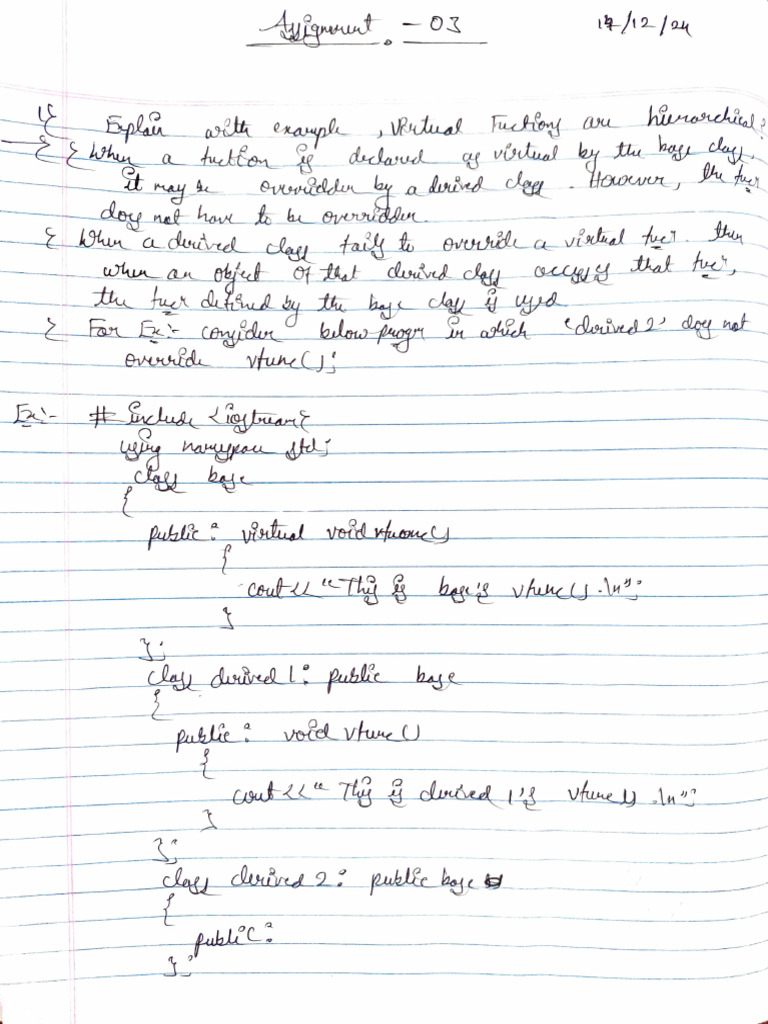 Assignment - 03 17/12/24
1} Explain with example, Virtual Fuctions are hierarchical?
} { When a fuction is declared as virtual by the base class,
it may be overridden by a derived class. However, the fucr
does not have to be overridden.
{ When a derived class fails to override a virtual fucr. then
when an object of that derived class that fucr,
the fucr defined by the base class is used
{ For Ex:- consider below progr in which 'derived 2' does not
override vfunc();
Ex:- # include <iostream{
using namespace std;
class base
{
public: virtual void
{
cout << "This is base's vfunc() .\n";
}
};
class derived 1: public base
{
public: void vfunc()
{
cout << "This is derived 1's vfunc() .\n";
}
};
class derived 2: public base
{
public:
};